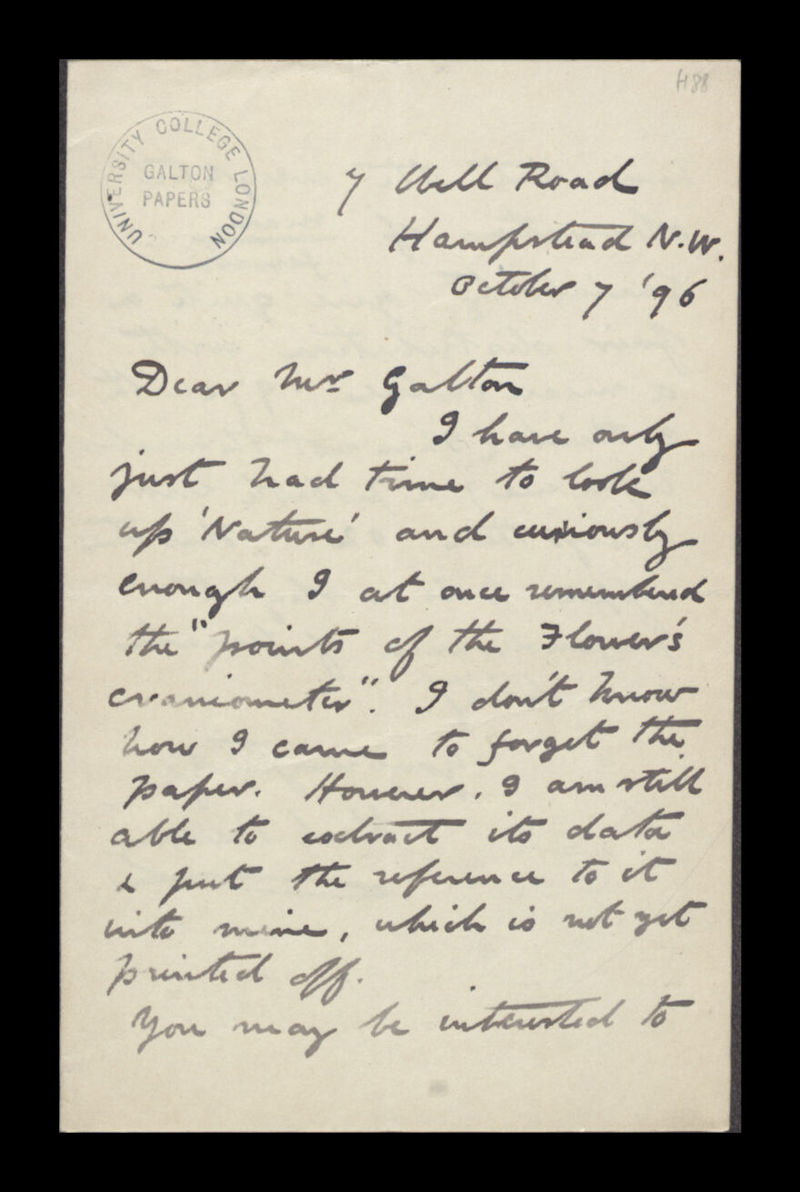 H88
UNIVERSITY COLLEGE LONDON
GALTON
PAPERS
7 Well Road
Hampstead N.W.
October 7 '96
Dear Mr Galton
I have only
just had time to look
up 'Nature' and curiously
enough I at once remembered
the "points of the Flower's
craniometer". I don't know
how I came to forget the
paper. However, I am still
able to extract its data
& put the reference to it
into mine, which is not yet
printed off.
You may be interested to